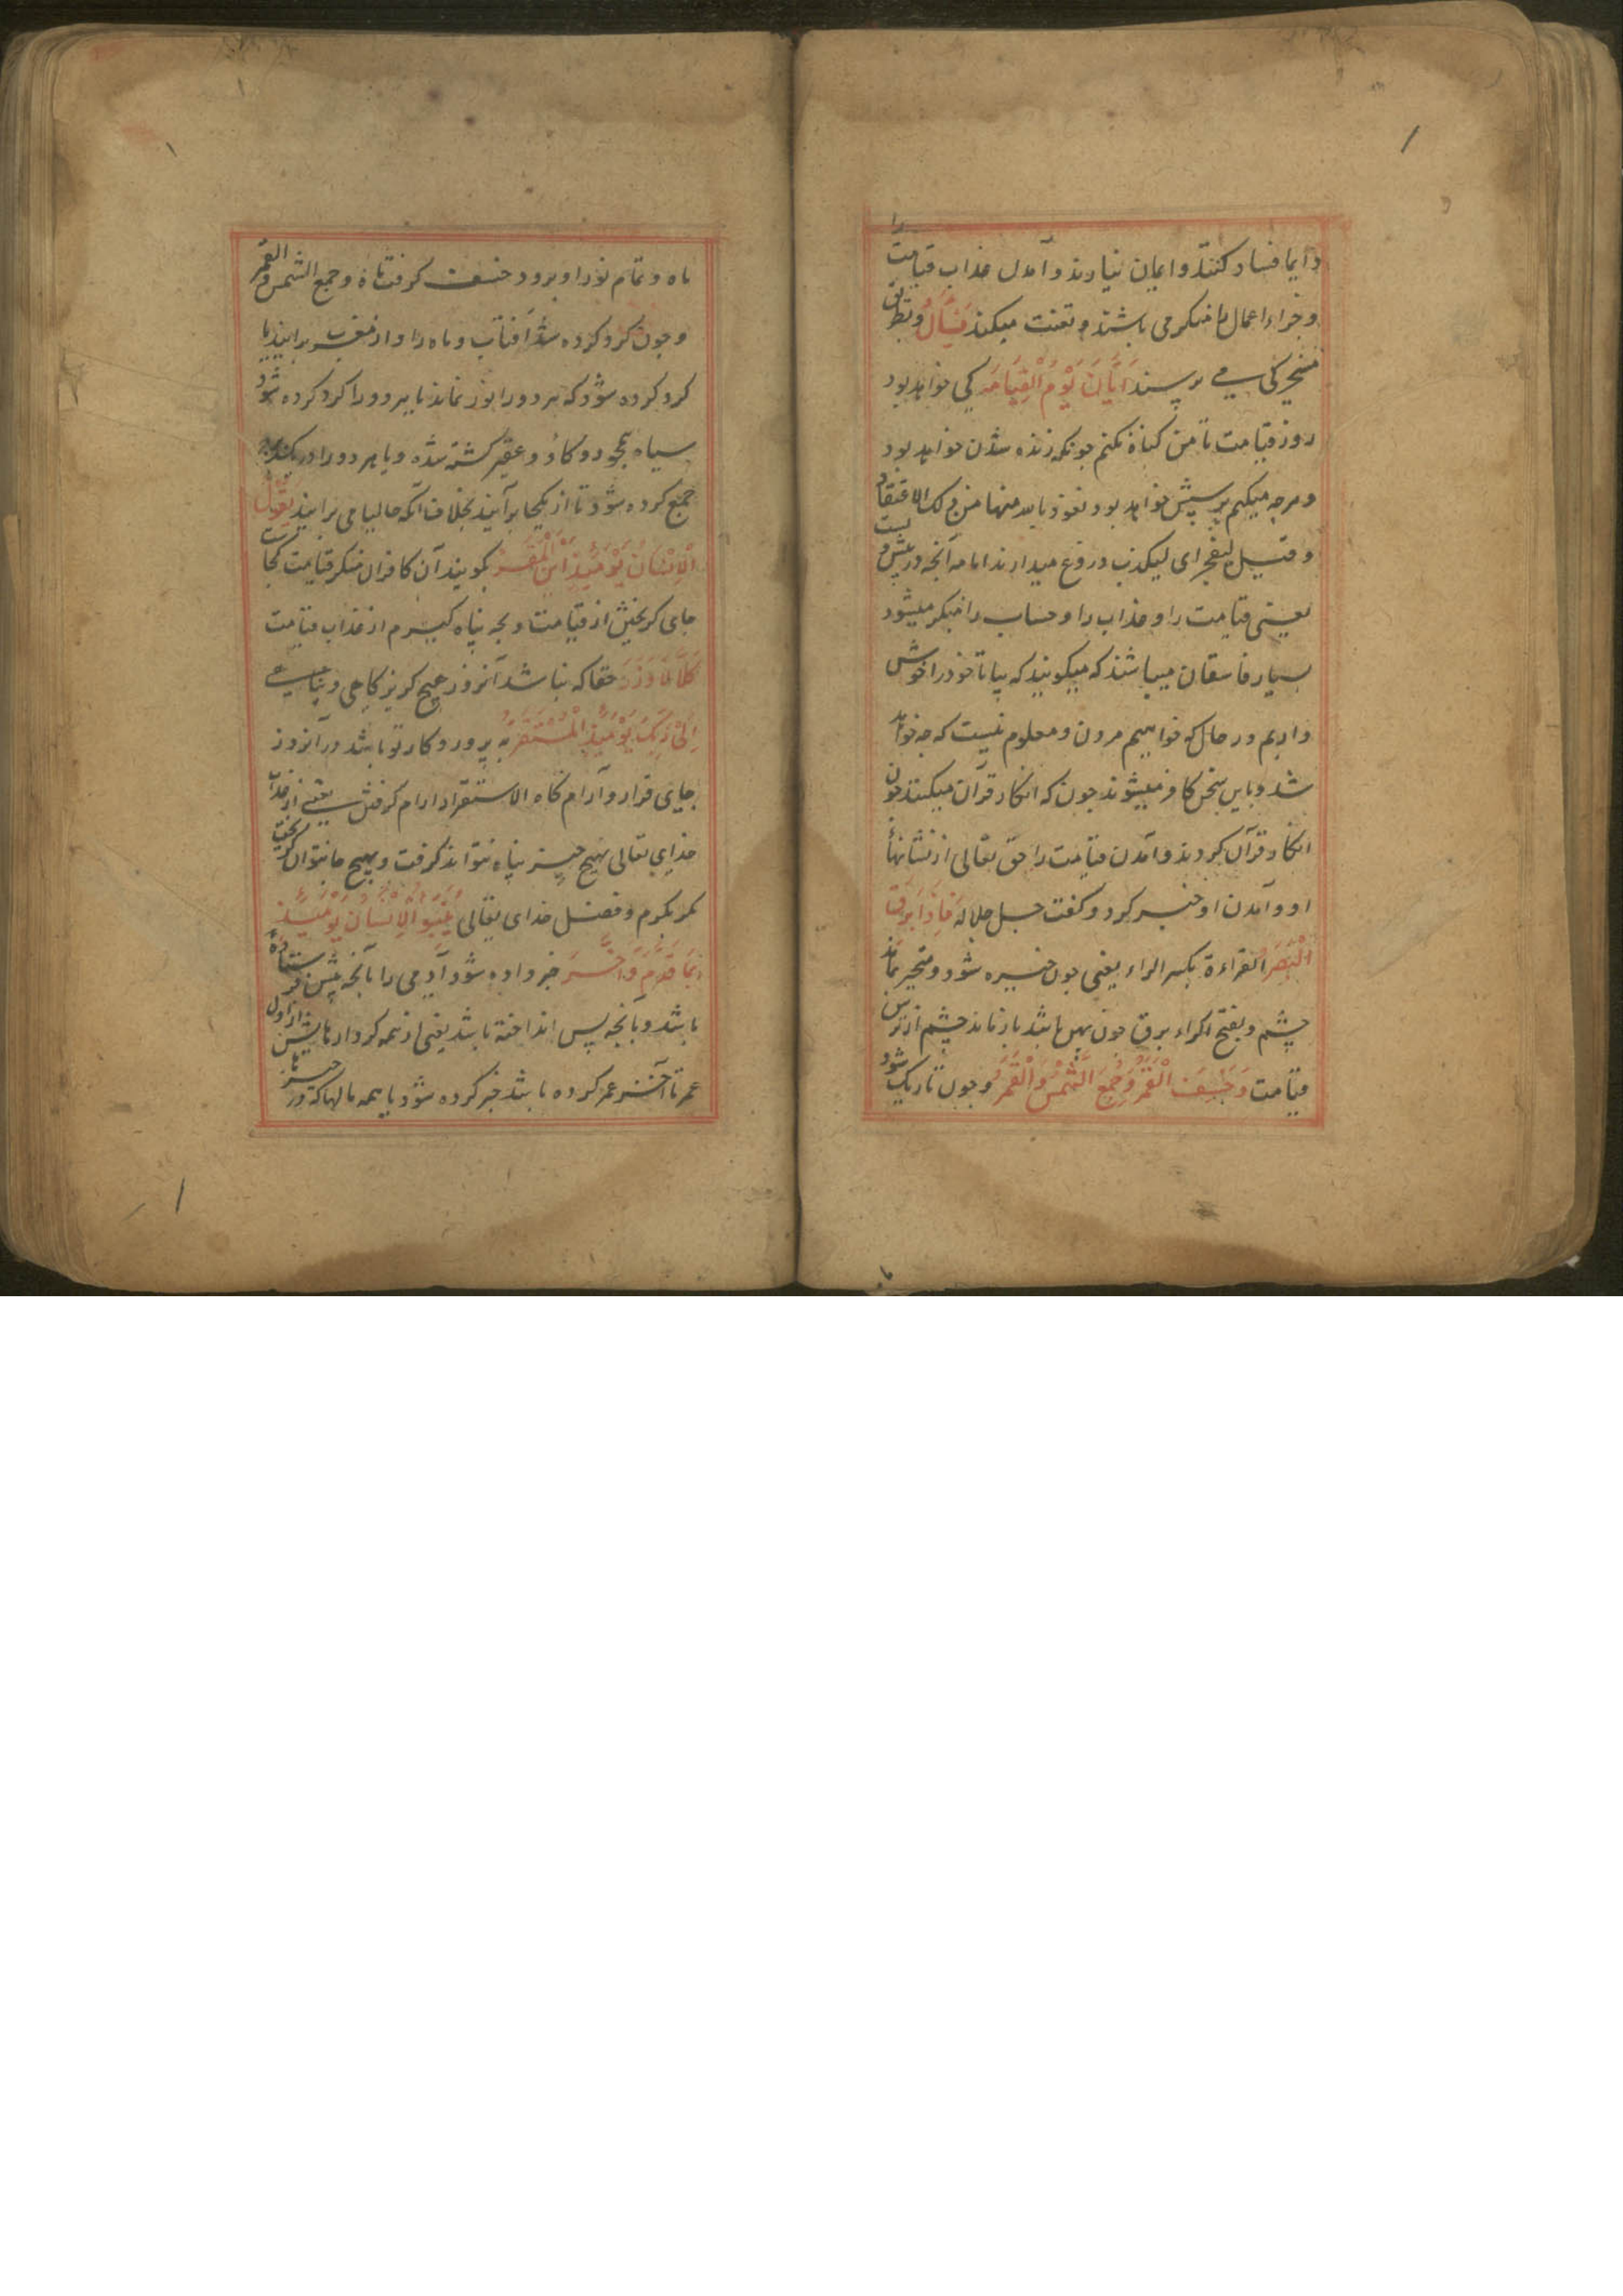 دایما فساد کنند و ایمان نیارند و آمدن عذاب قیامت را
و جزاء اعمال را منکر می باشند و تعنت میکنند یَسْأَلُ و بطریق
می پرسند اَیَّانَ یَوْمُ الْقِیَامَةِ کی خواهد بود
روز قیامت تا من کناه نکنم جونکه زنده شدن خواهد بود
و هرجه میکنم پرسش خواهد بود نعوذ بالله منها من ذلک الاعتقاد
و قیل لیفجر ای لیکذب دروغ میدارند امامه آنجه در پیش و یست
یعنی قیامت را و عذاب را و حساب را منکر میشود
بسیار فاسقان میباشند که میکویند که بیا تا خود را خوش
داریم در حال که خواهیم مردن و معلوم نیست که جه خواهد
شد و باین سخن کافر میشوند جون که انکار قرآن میکنند جون
انکار قرآن کردند و آمدن قیامت را حق تعالی از نشانها
او و آمدن او خبر کرد و کفت جل جلاله فَاِذَا بَرِقَ
الْبَصَرُ القراءة بکسر الراء یعنی جون خیره شود و متحیر بماند
چشم و بفتح الراء برق جون بهل باشد باز ماند چشم از ترس
قیامت وَخَسَفَ الْقَمَرُ وَجُمِعَ الشَّمْسُ وَالْقَمَرُ و جون تاریک شود
ماه و تمام نور او برود خسف کرفت ماه و جمع الشمس و القمر
و جون کرد کرده شد آفتاب و ماه را و از مغرب برایند یا
کرد کرده شود که هر دو را نور نماند یا هر دو را کرد کرده شود
سیاه همجو دو کاو عقیر کشته شده و یا هر دو را در یک
جمع کرده شود تا از یکجا برآیند بخلاف آنکه حالیا می برایند یَقُولُ
الْاِنْسَانُ یَوْمَئِذٍ اَیْنَ الْمَفَرُّ کویند آن کافران منکر قیامت کجاست
جای کریختن از قیامت و بجه پناه کیرم از عذاب قیامت
کَلَّا لَا وَزَرَ حقا که نباشد آنروز هیج کریز کاهی و پناهی
اِلَی رَبِّکَ یَوْمَئِذٍ الْمُسْتَقَرُّ به پروردکار تو باشد در آنروز
جای قرار و آرام کاه الاستقرار ارام کرفتن یعنی از عذاب
خدای تعالی بهیج چیز پناه نتواند کرفت و بهیج جا نتوان کریخت
مکر بکرم و فضل خدای تعالی یُنَبَّؤُا الْاِنْسَانُ یَوْمَئِذٍ
بِمَا قَدَّمَ وَاَخَّرَ خبر داده شود آدمی را بآنجه پیش فرستاده
باشد و بآنجه پس انداخته باشد یعنی از همه کردارهایش از اول
عمر تا آخر عمر کرده باشد خبر کرده شود یا همه مالها که در